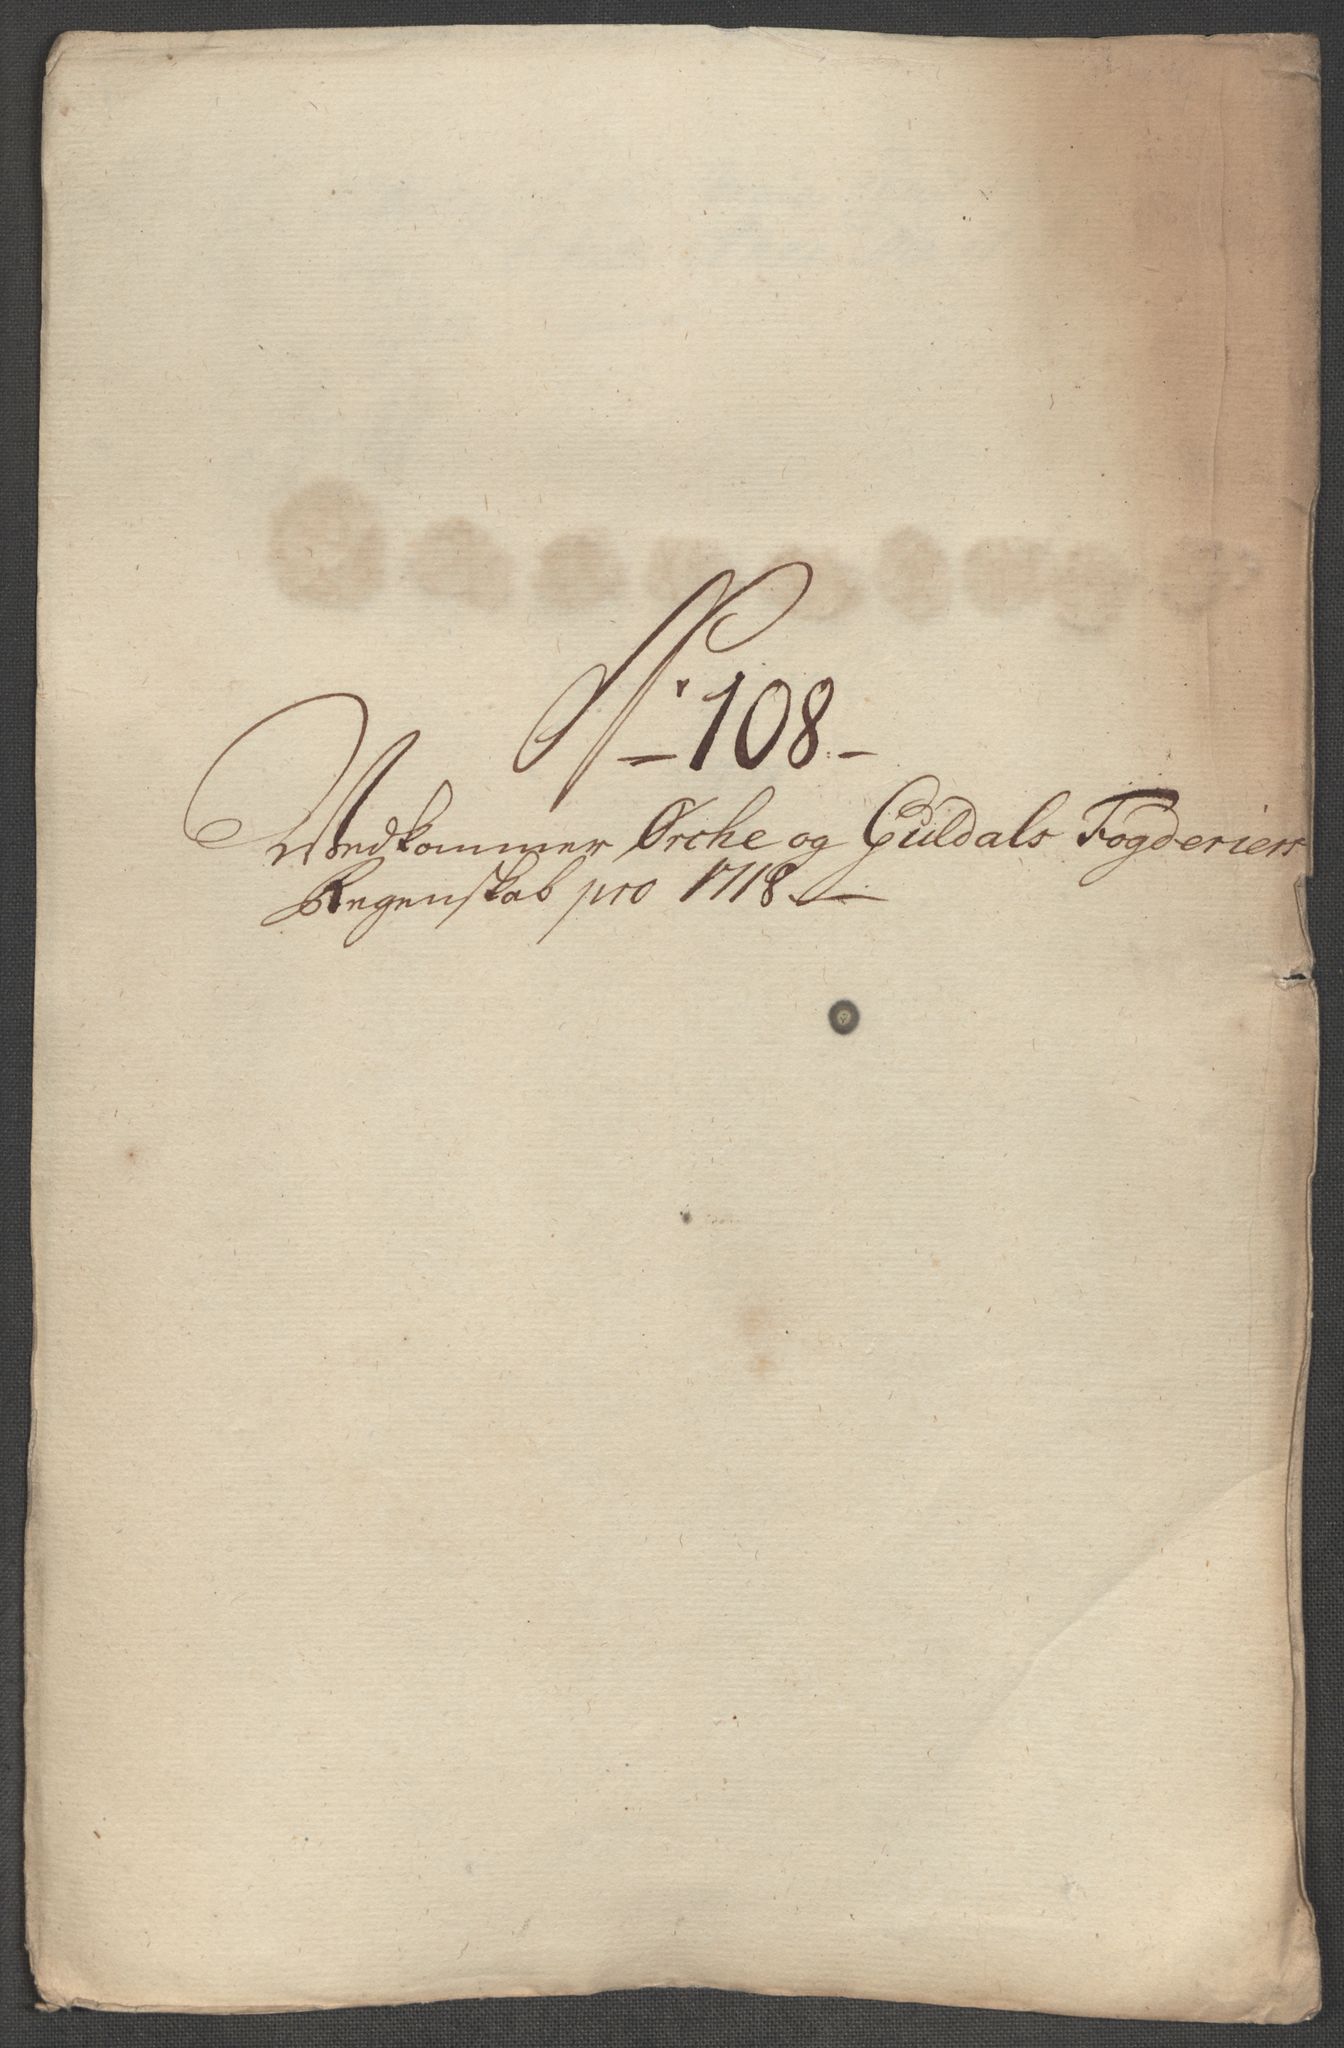 N: 108.
Vedkommer Ørche og Guldals Fogderiers
Regenskab pro 1718.